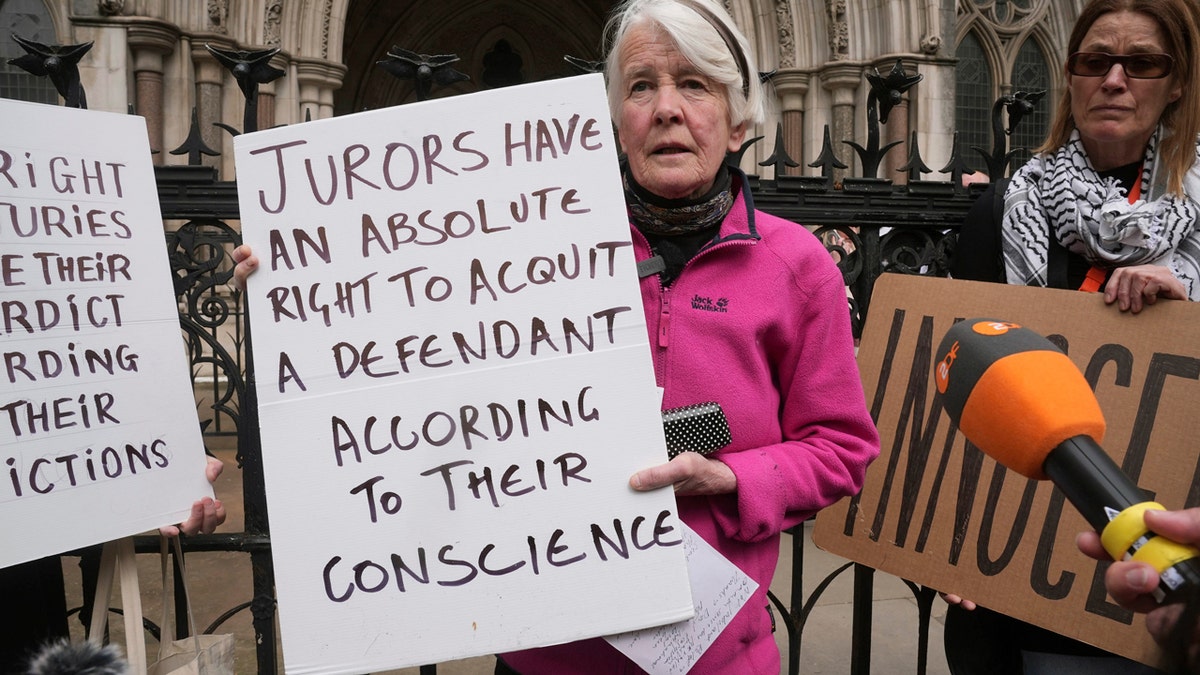 RIGHT
JURIES
THEIR
VERDICT
THEIR
JURORS HAVE
AN ABSOLUTE
RIGHT TO ACQUIT
A DEFENDANT
ACCORDING
TO THEIR
CONSCIENCE
Jack
Wolfskin
INNOCE